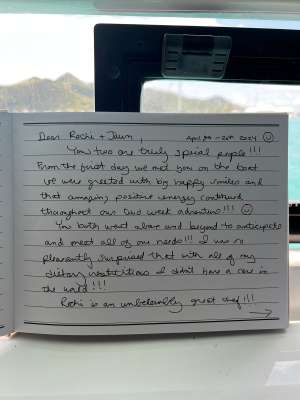 Dear Rochi + Jaun, April 7th - 20th 2024 ☺
You two are truly special people!!!
From the first day we met you on the boat
we were greeted with big happy smiles and
that amazing positive energy continued
throughout our two week adventure!!! ☺
You both went above and beyond to anticipate
and meet all of our needs!!! I was so
pleasantly surprised that with all of my
dietary restrictions I didn't have a care in
the world!!!
Rochi is an unbelievably great chef!!!